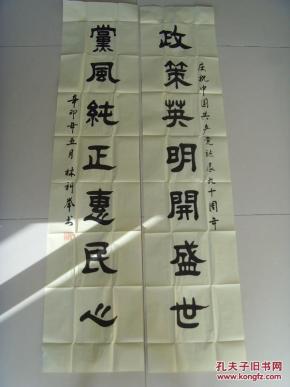 庆祝中国共产党诞辰九十周年
政策英明開盛世
黨風純正惠民心
辛卯年五月林利
孔夫子旧书网
kongfz.com